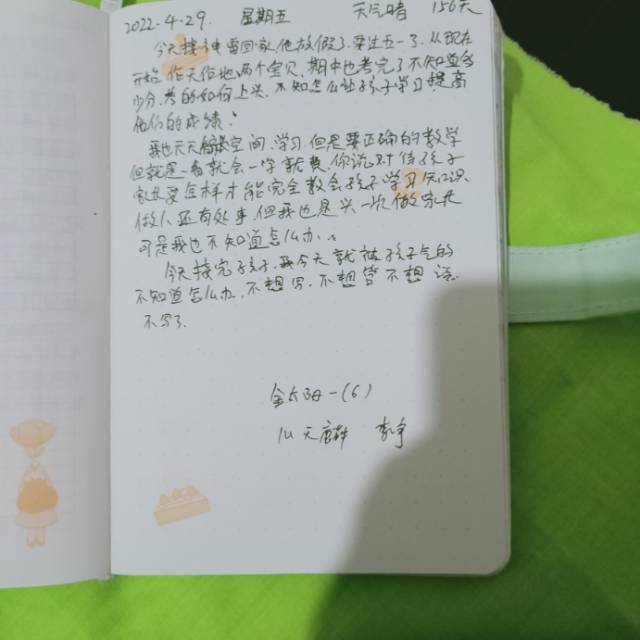 2022.4.29. 星期五 天气晴 156天
今天接 回家,他放假了,要过五一了,从现在
开始,作天作地,两个宝贝,期中也考完了不知道多
少分,考的如何上火,不知怎么让孩子学习提高
他们的成绩。
我也天天 空间,学习,但是要正确的教学
但就是一看就会一学就费,你说对待孩子
究竟要怎样才能完全教会孩子学习知识
做人还有处事,但我也是头一次做家长
可是我也不知道怎么办。
今天接完孩子,我今天就被孩子气的
不知道怎么办,不想写,不想管不想说
不写了.
金太阳一(6)
天麟 李净